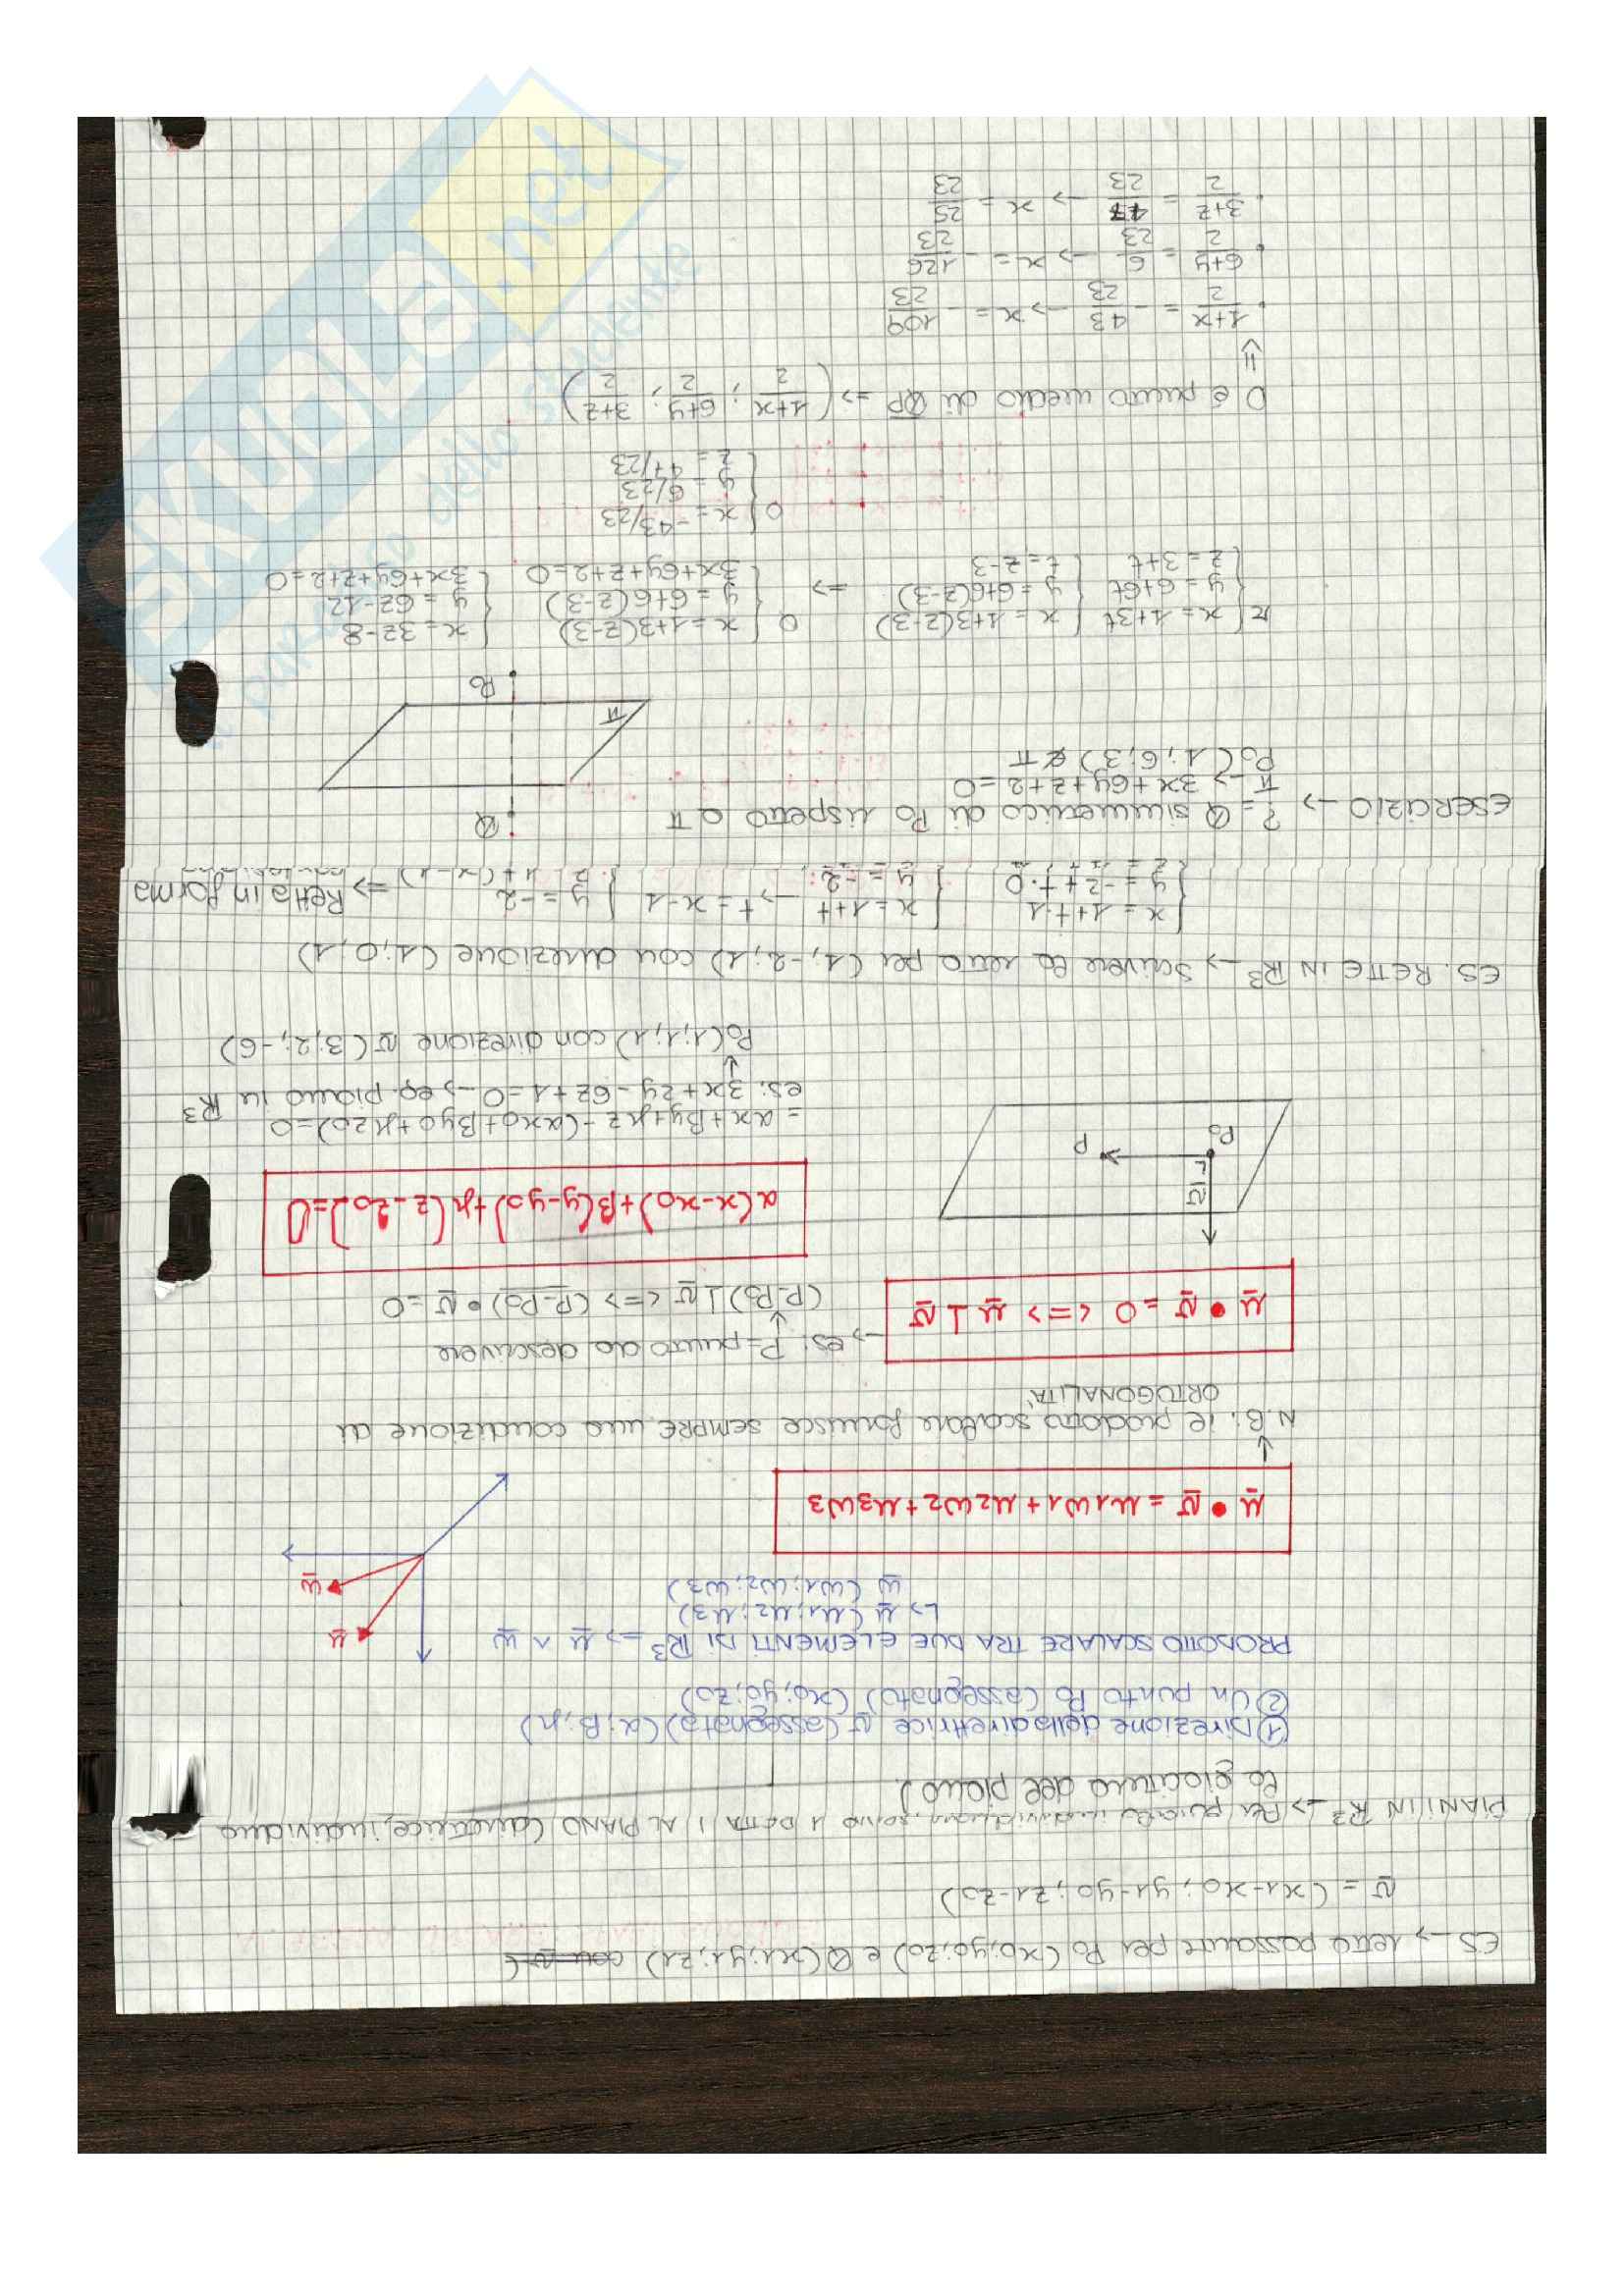 ES → retta passante per P0 (x0; y0; z0) e Q (x1; y1; z1)
v̅ = (x1-x0; y1-y0; z1-z0)
PIANI IN R³ → Per poterlo individuare, servono 1 RETTA ⊥ AL PIANO (direttrice, individua
la giacitura del piano)
① Direzione della direttrice v̅ (assegnata) (α; β; μ)
② Un punto P0 (assegnato) (x0; y0; z0)
PRODOTTO SCALARE TRA DUE ELEMENTI DI R³ => u̅ ∧ w̅
↳ u̅ (u1; u2; u3)
w̅ (w1; w2; w3)
u̅
w̅
u̅ • v̅ = u1w1 + u2w2 + u3w3
↓
N.B: il prodotto scalare fornisce SEMPRE una condizione di
ORTOGONALITA'
u̅ • v̅ = 0 <=> u̅ ⊥ v̅
→ es: P = punto da descrivere
(P-P0) ⊥ v̅ <=> (P-P0) • v̅ = 0
α(x-x0)+β(y-y0)+μ(z-z0)=0
v̅
P0
P
= αx+βy+μz-(αx0+βy0+μz0)=0
es: 3x+2y-6z+1=0 → eq. piano in R³
↓
P0(1; 1; 1) con direzione v̅ (3; 2; -6)
ES. RETTE IN R³ → scrivere la retta per (1; -2; 1) con direzione (1; 0; 1)
{ x = 1+t·1 { x = 1+t → t = x-1 { y = -2
y = -2+t·0 y = -2 z = 1+(x-1) => Retta in forma
ESERCIZIO → ? = Q simmetrico di P0 rispetto a π
π → 3x+6y+z+2=0
P0 (1; 6; 3) ∉ π
Q
π
P0
r { x = 1+3t { x = 1+3(z-3) O { x = 1+3(z-3) { x = 3z-8
y = 6+6t y = 6+6(z-3) => y = 6+6(z-3) y = 6z-12
z = 3+t t = z-3 3x+6y+z+2=0 3x+6y+z+2=0
O { x = -43/23
y = 6/23
z = 47/23
O è punto medio di QP => (1+x/2; 6+y/2; 3+z/2)
⇓
• 1+x/2 = -43/23 → x = -109/23
• 6+y/2 = 6/23 → x = -126/23
• 3+z/2 = 47/23 → x = 25/23
SKUOLA.net
dello studente